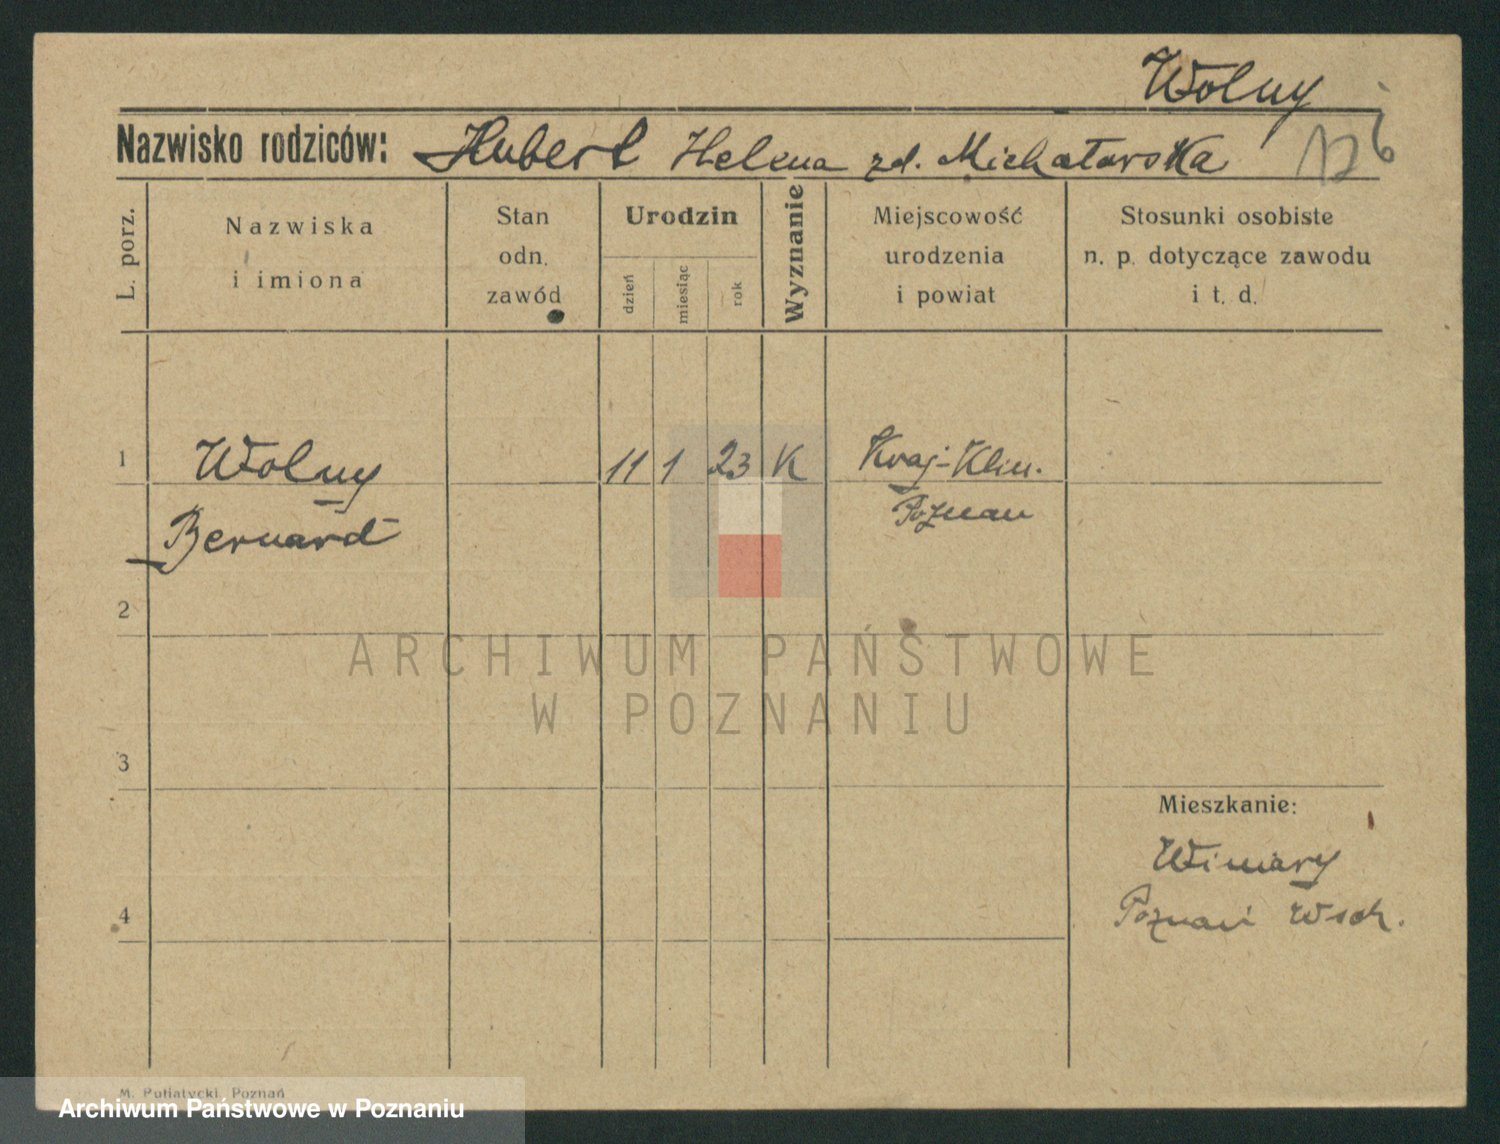 Wolny
Nazwisko rodziców: Hubert Helena zd. Michatarska
126
L. porz.
Nazwiska
i imiona
Stan
odn.
zawód
Urodzin
dzień
miesiąc
rok
Wyznanie
Miejscowość
urodzenia
i powiat
Stosunki osobiste
n. p. dotyczące zawodu
i t. d.
1 Wolny 11 1 23 K Kraj-Klin.
Bernard Poznan
2
ARCHIWUM PAŃSTWOWE
W POZNANIU
3
Mieszkanie:
Winiary
4 Poznań Wsch.
M. Putiatycki, Poznań
Archiwum Państwowe w Poznaniu